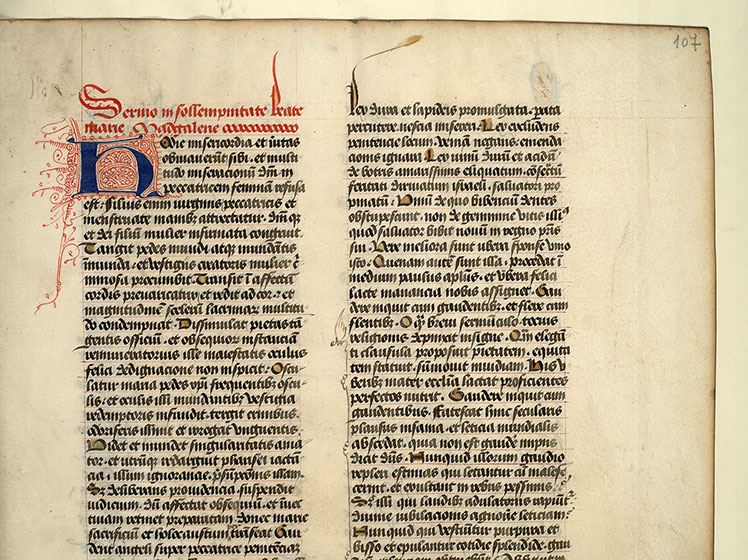 107
Sermo in sollempnitate beate
marie Magdalene
Hodie misericordia et uitas
obuiauerūt sibi · et multi
tudo miseracionū dn̄i in
peccatricem feminā refusa
est · Filius enim uirginis peccatricis et
menstruate manibz attrectatur · dn̄iqz
et dei filiū mulier infirmata congruit
Tangit pedes mundi atqz mundātis
īmunda · et uestigiis creatoris mulier
imosa procumbit · Transit ī affectū
cordis preuaricatrix et redit ad cor · et
magnitudinē scelerū lacrimarū multitu
do condempnat · Dissimulat pietas tā
grātis officiū · et obsequiorū instanciā
remuneratoris ille maiestatis oculus
felici dedignacione non inspicit · Oscu
latur maria pedes xp̄i frequentibz oscu
lis · et oculis illi inundātibz uestigia
redemptoris infundit · tergit crinibus ·
odoriferis illinit et irrogat unguentis ·
Videt et inuidet singularitatis ama
tor · et utrūqz redarguit pharisei iactā
cia · illum ignorancie · p̄supciōis illam ·
S deliberans prouidencia · suspendit
iudicium · dū affectat obsequiū · et
tuam permet preparatam donec marie
sacrificiū et holocaustum transeat · Gau
dent angeli super peccatrice penitēciā
lex dura et lapideis promulgata · parata
percutere · nescia misereri · Lex excludens
penitencie locum · ueniam negans · emenda
cionis ignara · Lex uinum durū et acidū
de botris amarissimis eliquatum ·
feritati israeli · saluatori pro
pinatū · Vinū de quo bibenciū dentes
obstupescant · non de germine uitis illiꝰ
quod saluator bibit nouum in regno patris
sui · Vere meliora sunt ubera sponse uino
isto · Quenam autē sunt illa · procedat ī
medium paulus apl̄us · et ubera felici
lacte manancia nobis assignet · Gau
dere inquit cum gaudentibz · et flere cum
flentibz · O qz breui sermūculo · tocius
religionis depinxit insigne · Qm̄ elegan
ti clausula proposuit pietatem · equita
tem statuit · summouit inuidiam · Hiis u
beribz mater ecclesia lactat proficientes
perfectos nutrit · Gaudere inquit cum
gaudentibus · Facescat hinc secularis
plausus insania · et leticia mundialis
abscedat · qua non est gaudē impiis
dicit dn̄s · Nunquid illorum gaudio
repleri estimas qui letantur cū malefe
cerint · et exultant in rebus pessimis ·
illi qui laudibz adulatoriis rapiūtur
diuine iubilacionis agnoscē leticiam ·
Nunquid qui uestiūtur purpura et
bisso et epulantur cotidie splendide · gau